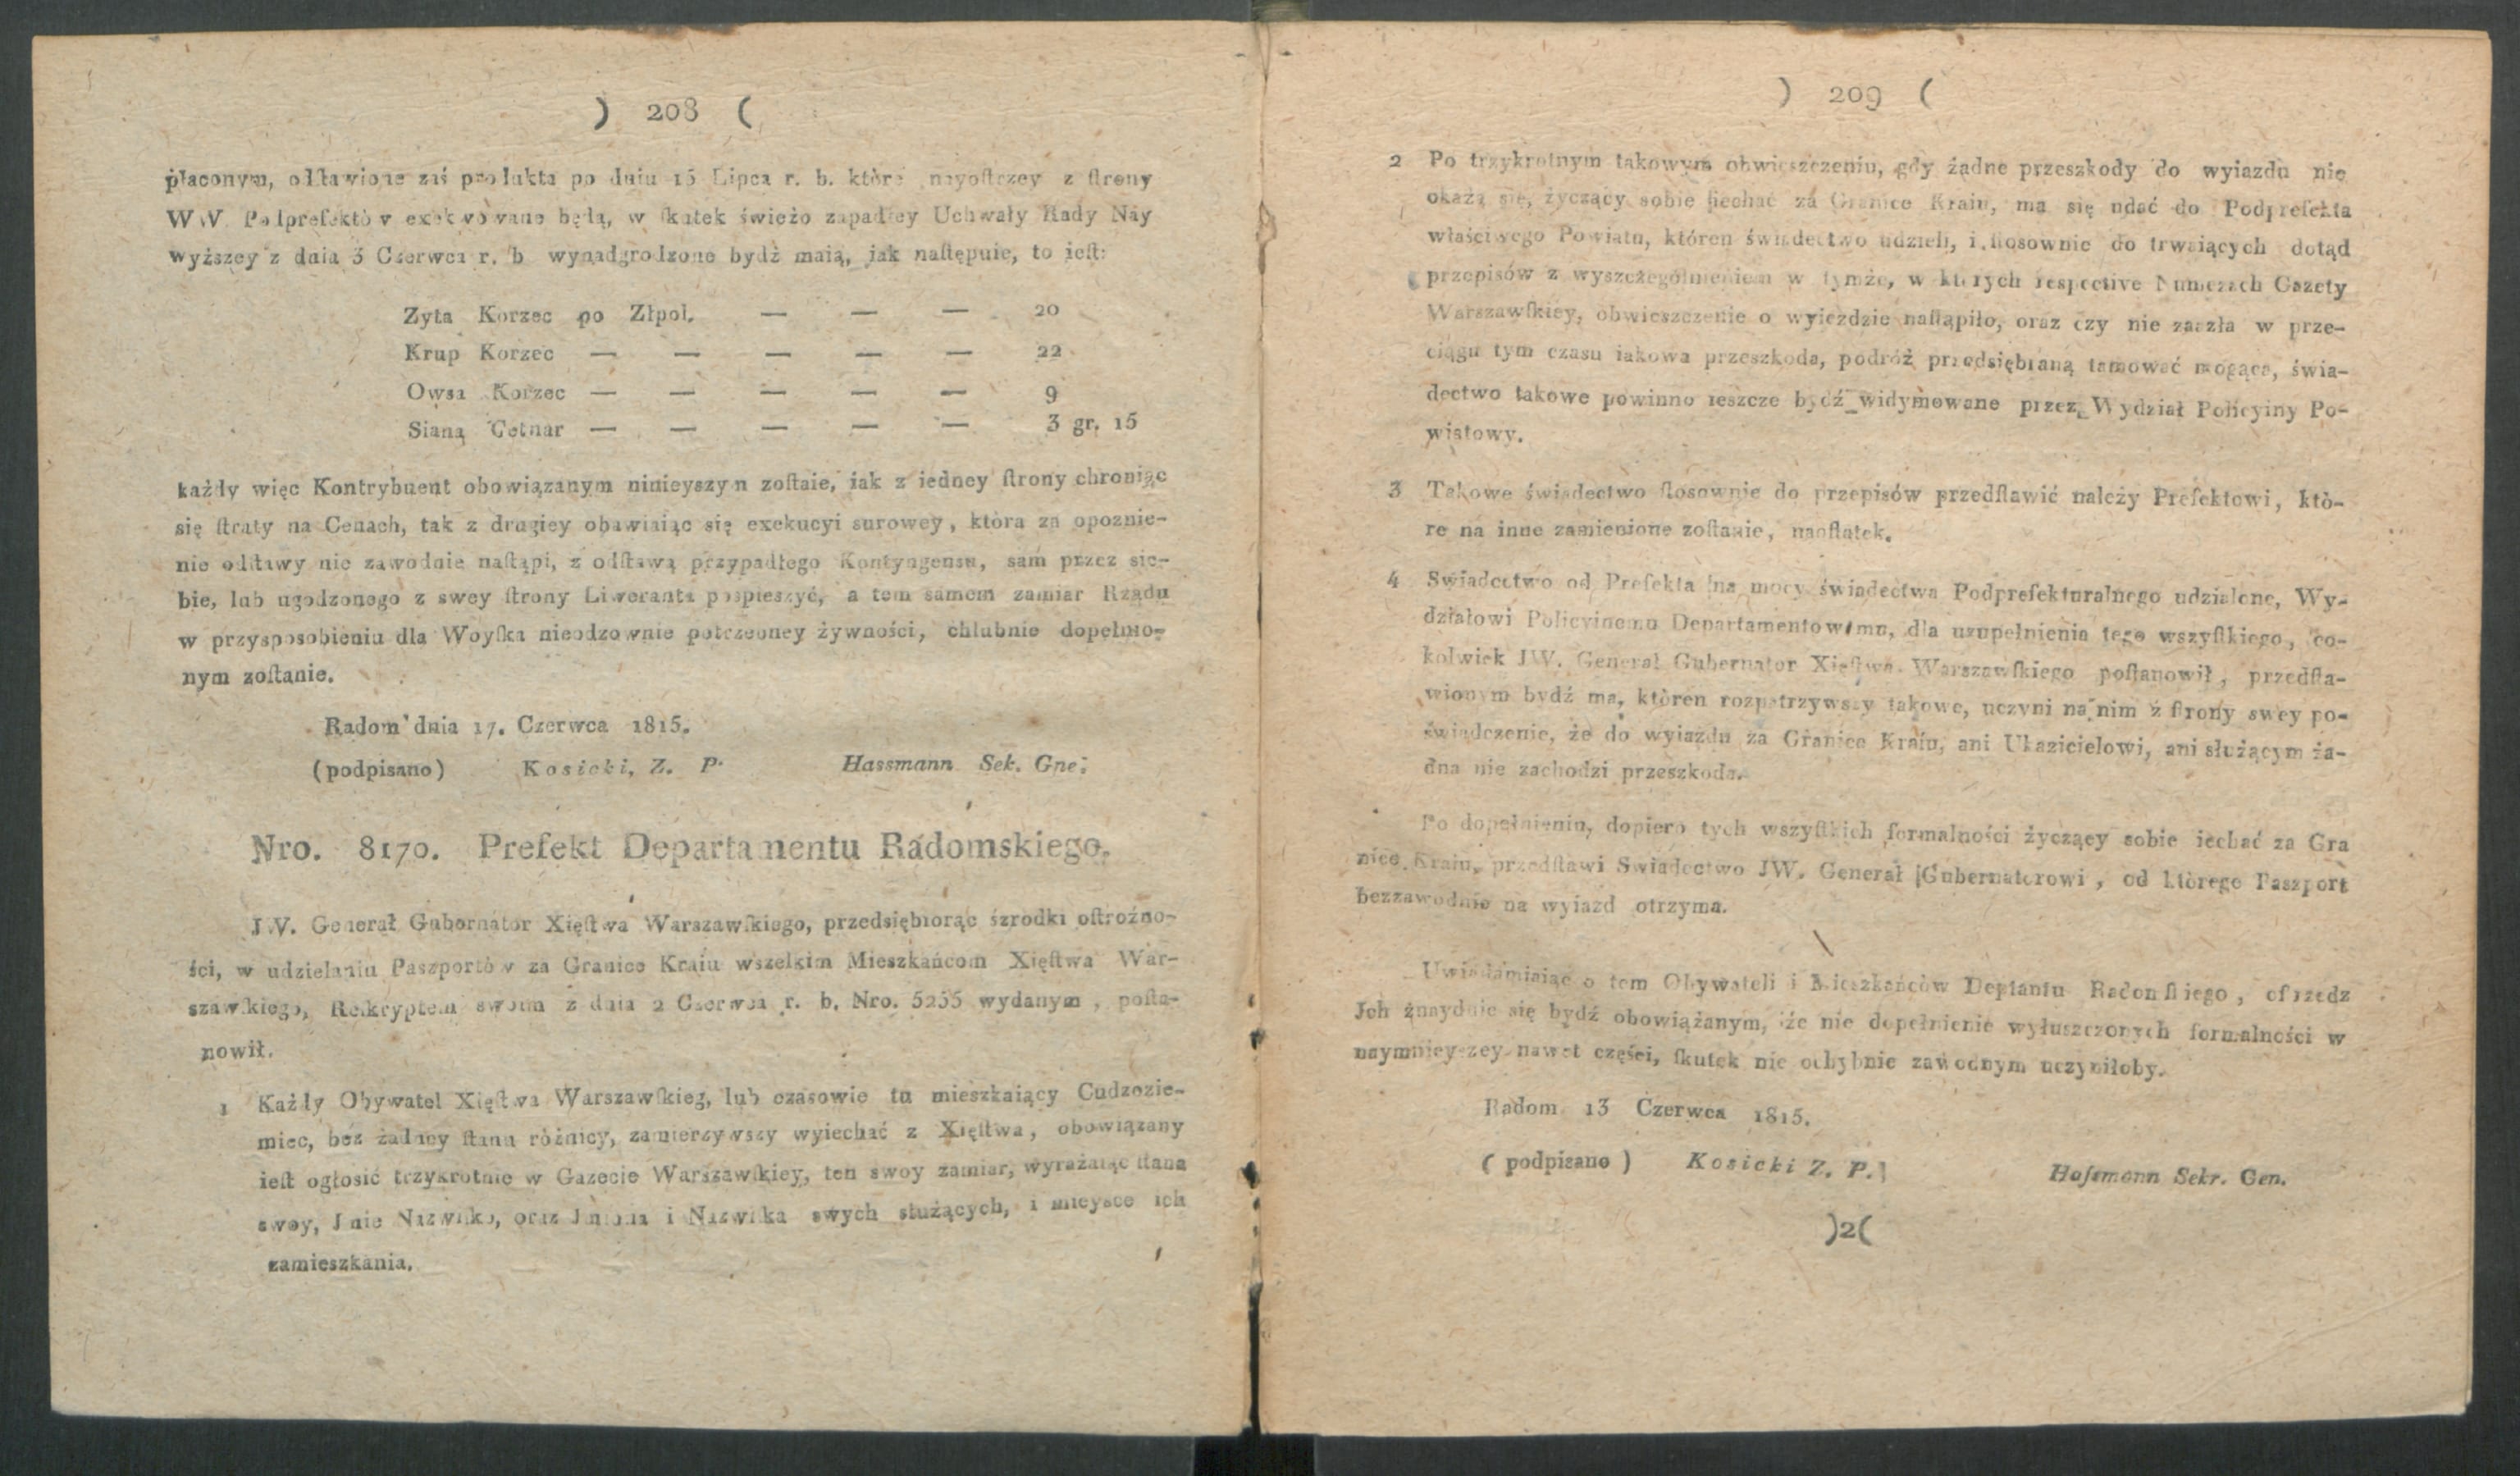 ) 208 (
płaconym, odſtawione zaś produkta po dniu 15 Lipca r. b. które nayoſtrzey z ſtrony
WW. Podprefektòw exekwowane będą, w ſkutek świeżo zapadłey Uchwały Rady Nay
wyższey z dnia 3 Czerwca r. b wynadgrodzone bydź maią, jak naſtępuie, to ieſt:
Zyta Korzec po Złpol. — — — 20
Krup Korzec — — — — — 22
Owsa Korzec — — — — — 9
Siana Cetnar — — — — — 3 gr. 15
każdy więc Kontrybuent obowiązanym ninieyszym zoſtaie, iak z iedney ſtrony chroniąc
się ſtraty na Cenach, tak z drugiey obawiaiąc się exekucyi surowey, która za opoznie-
nie odſtawy nie zawodnie naſtąpi, z odſtawą przypadłego Kontyngensu, sam przez sie-
bie, lub ugodzonego z swey ſtrony Liweranta pospieszyć, a tem samem zamiar Rządu
w przysposobieniu dla Woyſka nieodzownie potrzebney żywności, chlubnie dopełnio-
nym zoſtanie.
Radom dnia 17. Czerwca 1815.
(podpisano) Kosicki, Z. P. Hassmann Sek. Gne:
Nro. 8170. Prefekt Departamentu Radomskiego.
JW. Generał Gubernator Xięſtwa Warszawſkiego, przedsiębiorąc śzrodki oſtroźno-
ści, w udzielaniu Paszportów za Granice Kraiu wszelkim Mieszkańcom Xięſtwa War-
szawſkiego, Reſkryptem swoim z dnia 2 Czerwca r. b. Nro. 5255 wydanym, poſta-
nowił.
1 Każdy Obywatel Xięſtwa Warszawſkieg, lub czasowie tu mieszkaiący Cudzozie-
miec, bez żadney ſtanu różnicy, zamierzywszy wyiechać z Xięſtwa, obowiązany
ieſt ogłosić trzykrotnie w Gazecie Warszawſkiey, ten swoy zamiar, wyrażaiąc ſtana
swoy, Jmie Nazwiſko, oraz Jmiona i Nazwiſka swych służących, i mieysce ich
zamieszkania.
) 209 (
2 Po trzykrotnym takowym obwieszczeniu, gdy żadne przeszkody do wyiazdu nie
okażą się, życzący sobie iechać za Granice Kraiu, ma się udać do Podprefekta
właściwego Powiatu, któren świadectwo udzieli, i ſtosownie do trwaiących dotąd
przepisów z wyszczególnieniem w tymże, w których respective Numerach Gazety
Warszawſkiey, obwieszczenie o wyieździe naſtąpiło, oraz czy nie zaszła w prze-
ciągu tym czasu iakowa przeszkoda, podróż przedsiębraną tamować mogąca, świa-
dectwo takowe powinno ieszcze bydź widymowane przez Wydział Policyiny Po-
wiatowy.
3 Takowe świadectwo ſtosownie do przepisów przedſtawić należy Prefektowi, któ-
re na inne zamienione zoſtanie, naoſtatek.
4 Swiadectwo od Prefekta na mocy świadectwa Podprefekturalnego udzielone, Wy-
działowi Policyinemu Departamentowemu, dla uzupełnienia tego wszyſtkiego, co-
kolwiek JW. Generał Gubernator Xięſtwa Warszawſkiego poſtanowił, przedſta-
wionym bydź ma, któren rozpatrzywszy takowe, uczyni na nim z ſtrony swey po-
świadczenie, że do wyiazdu za Granice Kraiu, ani Ukazicielowi, ani służącym ża-
dna nie zachodzi przeszkoda.
Po dopełnieniu, dopiero tych wszyſtkich formalności życzący sobie iechać za Gra
nice Kraiu, przedſtawi Swiadectwo JW. Generał Gubernatorowi, od którego Paszport
bezzawodnie na wyiazd otrzyma.
Uwiadamiaiąc o tem Obywateli i Mieszkańców Deptantu Radomſkiego, osrzedz
Jch znayduie się bydź obowiążanym, że nie dopełnienie wyłuszczonych formalności w
naymnieyszey nawet części, ſkutek nie ochybnie zawodnym uczyniłoby.
Radom 13 Czerwca 1815.
( podpisano ) Kosicki Z. P. Haſsmann Sekr. Gen.
)2(